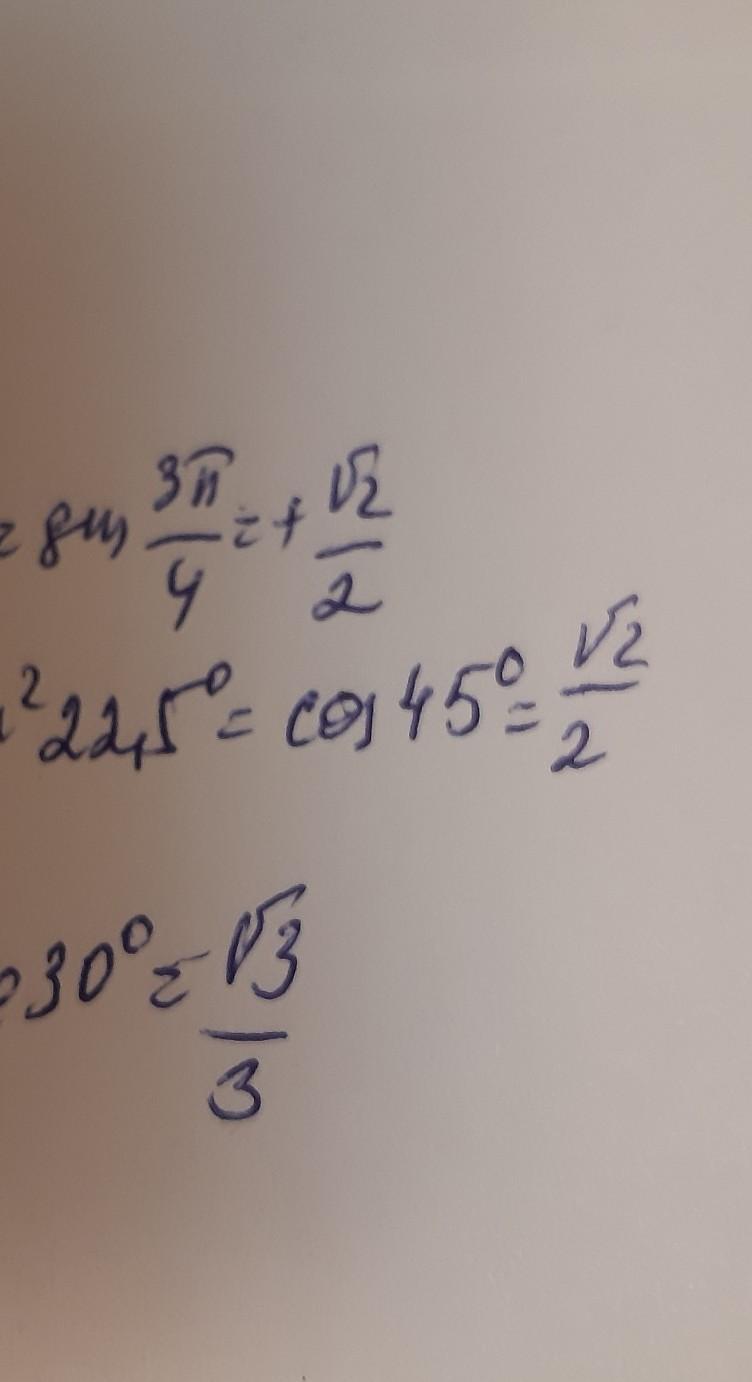 = sin 3π/4 = + √2/2
² 22,5° = cos 45° = √2/2
30° = √3/3